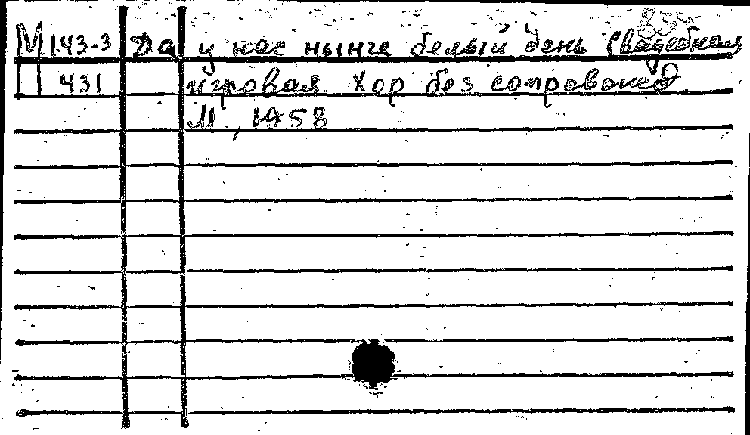 835
М 143-3 Да у нас нынче белый день Свадебная
431 игровая. Хор без сопровожд
М., 1958